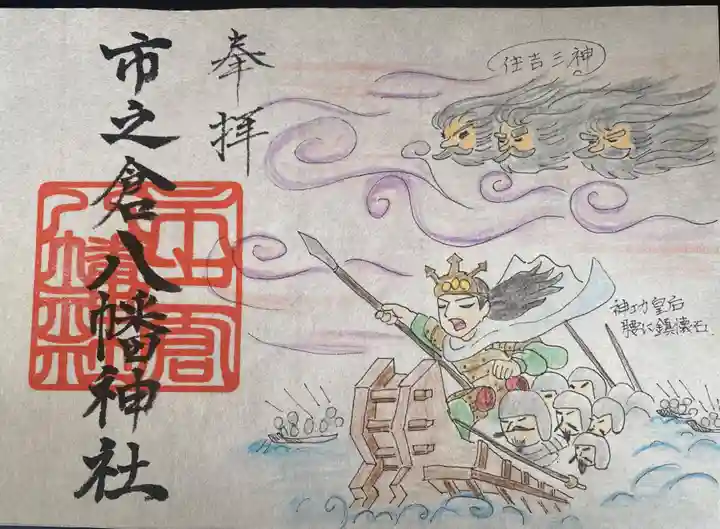 奉拝
市之倉八幡神社
住吉三神
神功皇后
腰に鎮懐石